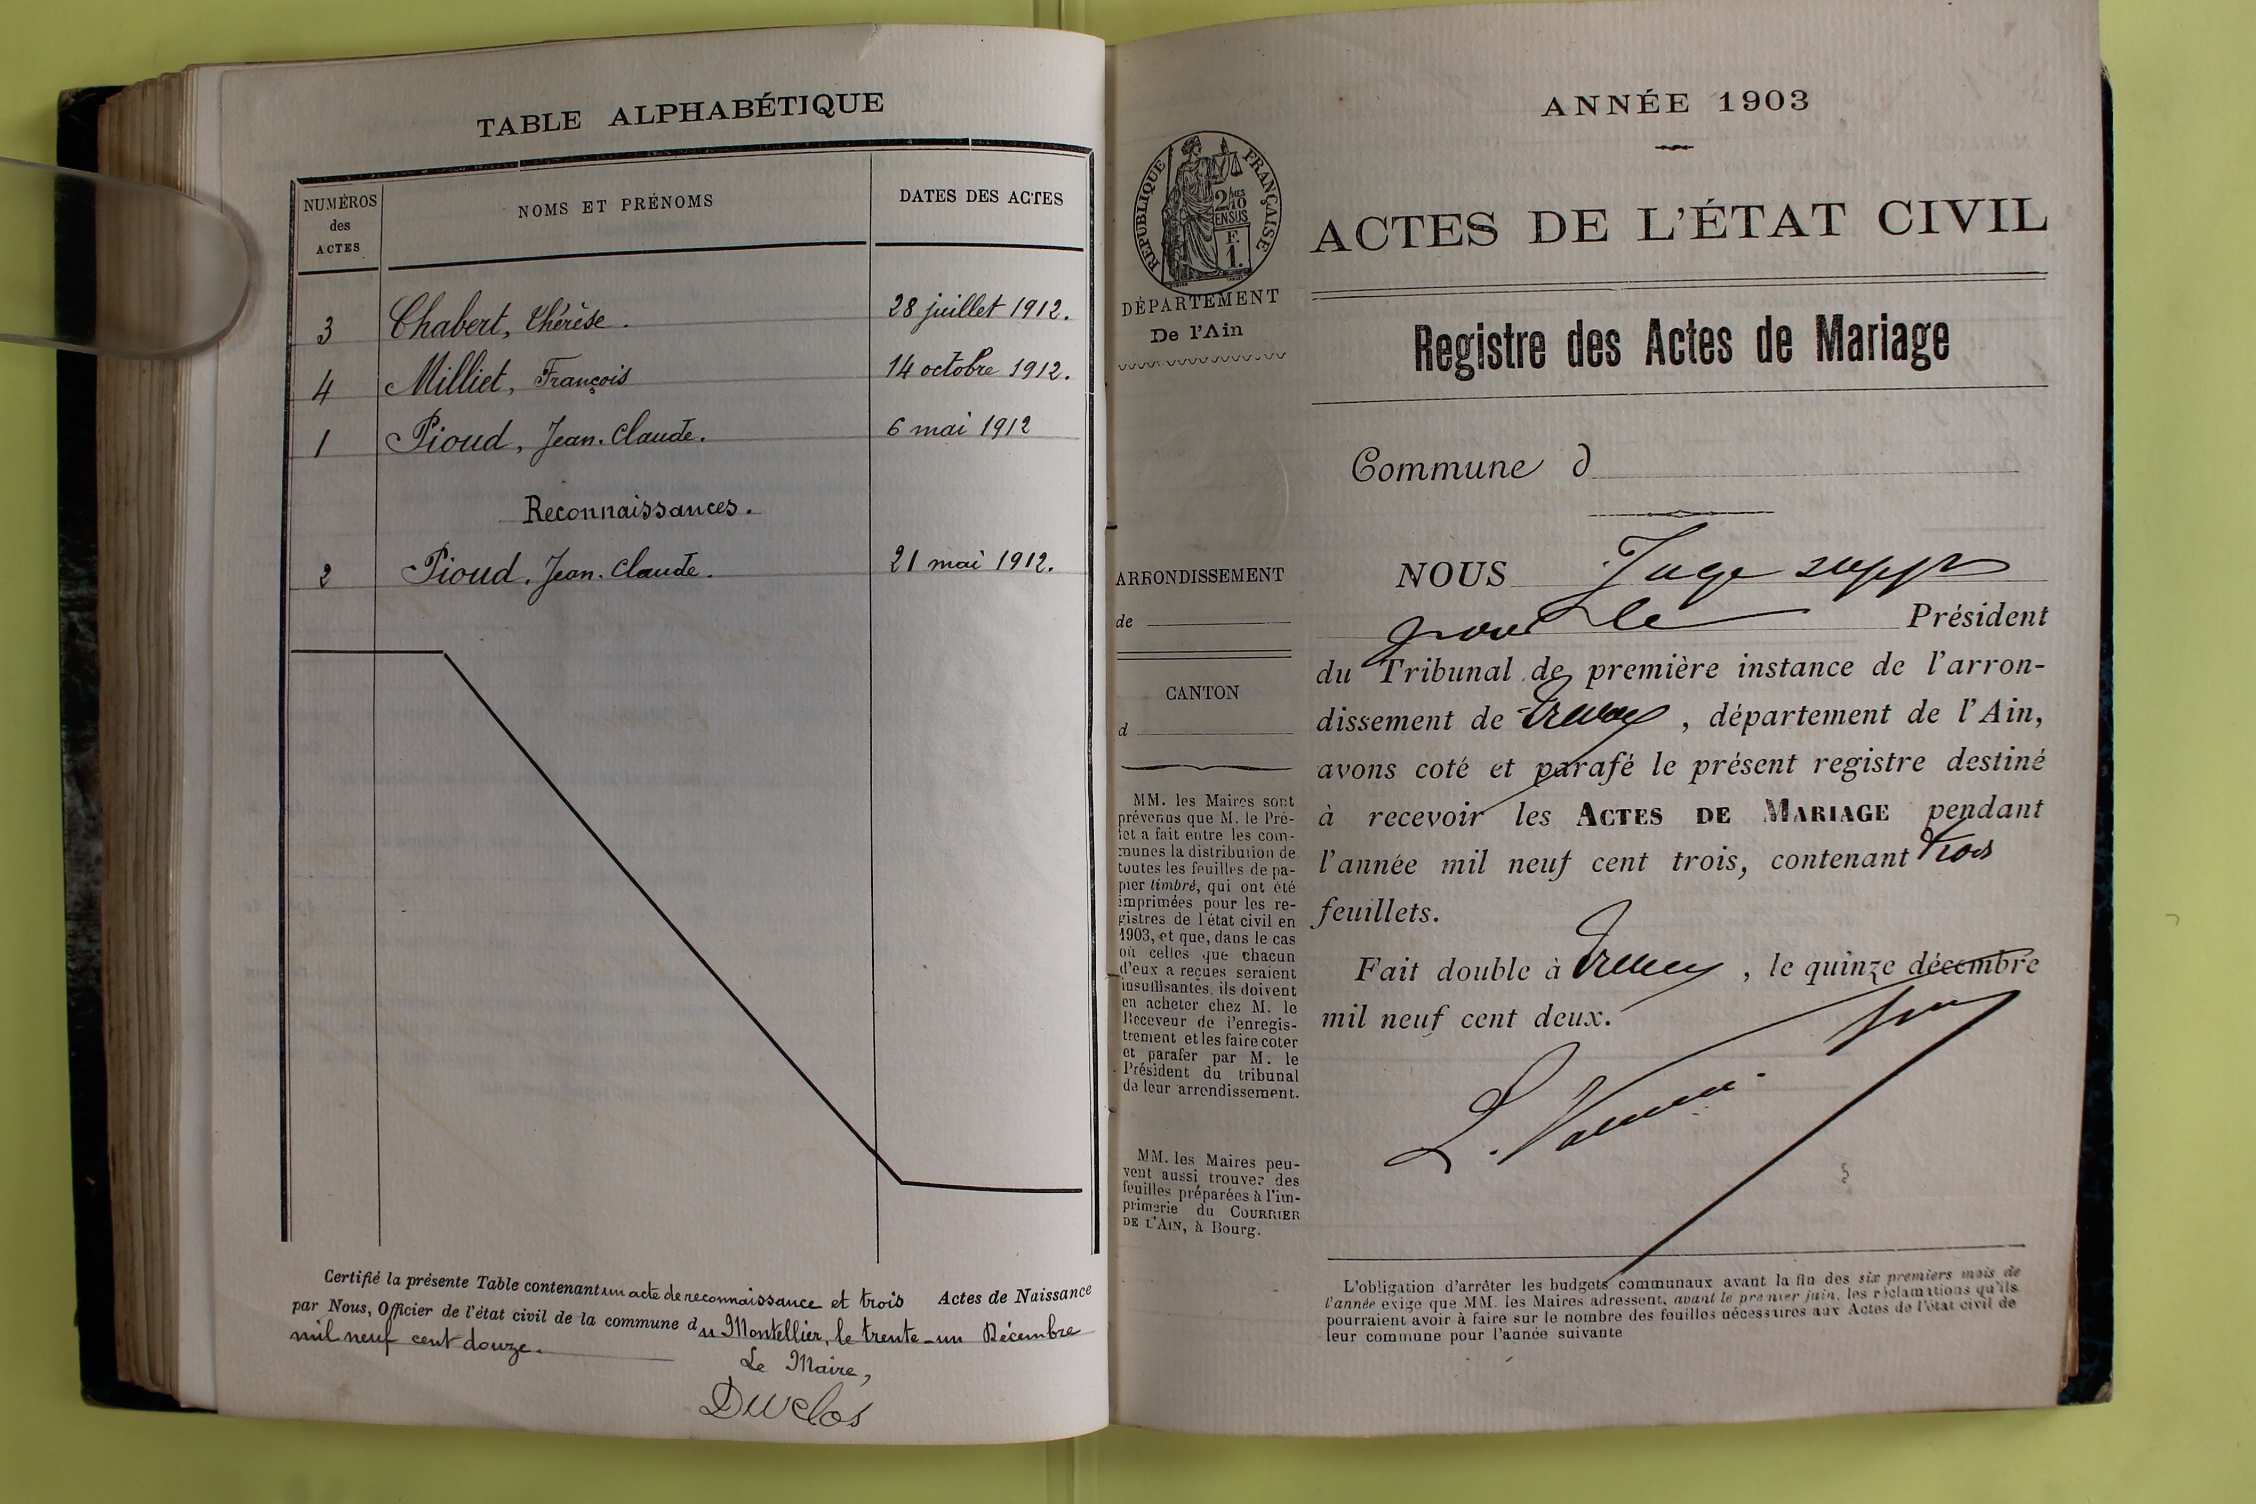 TABLE ALPHABÉTIQUE
NUMÉROS des ACTES
NOMS ET PRÉNOMS
DATES DES ACTES
3 Chabert, Thérèse. 28 juillet 1912.
4 Milliet, François 14 octobre 1912.
1 Pioud, Jean-Claude. 6 mai 1912
Reconnaissances.
2 Pioud, Jean-Claude. 21 mai 1912.
Certifié la présente Table contenant un acte de reconnaissance et trois Actes de Naissance
par Nous, Officier de l'état civil de la commune du Montellier, le trente-un Décembre
mil neuf cent douze.
Le Maire,
Duclos
RÉPUBLIQUE FRANÇAISE
2/10
EN SUS
F.
1.
DÉPARTEMENT
De l'Ain
ARRONDISSEMENT
de
CANTON
d
MM. les Maires sont
prévenus que M. le Pré-
fet a fait entre les com-
munes la distribution de
toutes les feuilles de pa-
pier timbré, qui ont été
imprimées pour les re-
gistres de l'état civil en
1903, et que, dans le cas
où celles que chacun
d'eux a reçues seraient
insuffisantes, ils doivent
en acheter chez M. le
Receveur de l'enregis-
trement et les faire coter
et parafer par M. le
Président du tribunal
de leur arrondissement.
MM. les Maires peu-
vent aussi trouver des
feuilles préparées à l'im-
primerie du COURRIER
DE L'AIN, à Bourg.
ANNÉE 1903
ACTES DE L'ÉTAT CIVIL
Registre des Actes de Mariage
Commune d
NOUS Juge supp
pour le Président
du Tribunal de première instance de l'arron-
dissement de Trévoux, département de l'Ain,
avons coté et parafé le présent registre destiné
à recevoir les ACTES DE MARIAGE pendant
l'année mil neuf cent trois, contenant trois
feuillets.
Fait double à Trévoux, le quinze décembre
mil neuf cent deux.
L'obligation d'arrêter les budgets communaux avant la fin des six premiers mois de
l'année exige que MM. les Maires adressent, avant le premier juin, les réclamations qu'ils
pourraient avoir à faire sur le nombre des feuilles nécessaires aux Actes de l'état civil de
leur commune pour l'année suivante